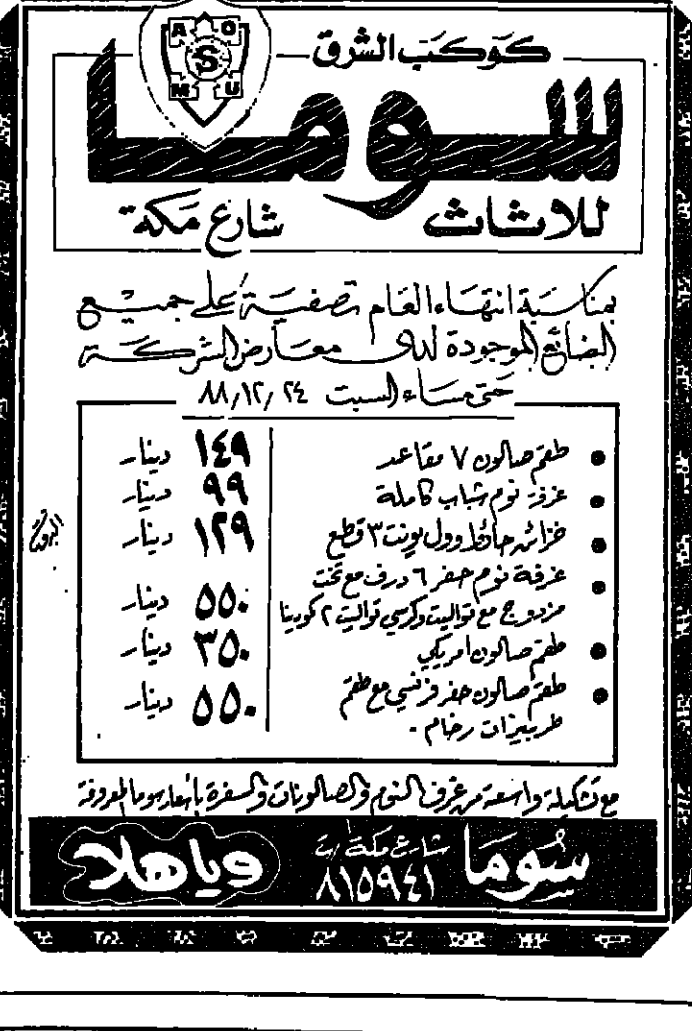 A O
S
M U
كوكب الشرق
سوما
للاثاث شارع مكة
بمناسبة انتهاء العام تصفية على جميع
البضائع الموجودة لدى معارض الشركة
حتى مساء السبت ٢٤/١٢/٨٨
• طقم صالون ٧ مقاعد ١٤٩ دينار
• غرفة نوم شباب كاملة ٩٩ دينار
• خزائن حائط وول يونت ٣ قطع ١٢٩ دينار
• غرفة نوم حفر ٦ درف مع تخت
مزدوج مع تواليت وكرسي تواليت ٢ كودينا ٥٥٠ دينار
• طقم صالون امريكي ٣٥٠ دينار
• طقم صالون حفر فرنسي مع طقم ٥٥٠ دينار
طربيزات رخام -
مع تشكيلة واسعة من غرف النوم والصالونات والسفرة بأسعار سوما المعروفة
سوما شارع مكة / ت ٨١٥٩٤١ وياهلا